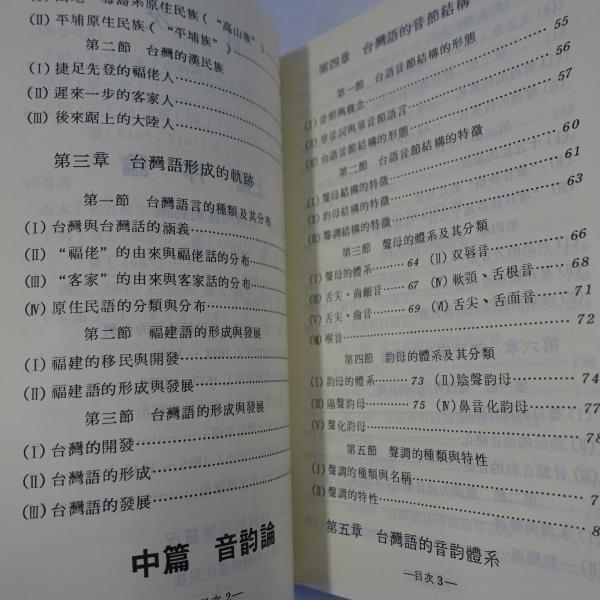 (Ⅱ) 平埔原住民族(“平埔族”)…
第二節 台灣的漢民族
(Ⅰ) 捷足先登的福佬人…………
(Ⅱ) 遲來一步的客家人…………
(Ⅲ) 後來踞上的大陸人…………
第三章 台灣語形成的軌跡
第一節 台灣語言的種類及其分布
(Ⅰ) 台灣與台灣話的涵義…………
(Ⅱ) “福佬”的由來與福佬話的分布…
(Ⅲ) “客家”的由來與客家話的分布…
(Ⅳ) 原住民語的分類與分布…………
第二節 福建語的形成與發展
(Ⅰ) 福建的移民與開發…………
(Ⅱ) 福建語的形成與發展…………
第三節 台灣語的形成與發展
(Ⅰ) 台灣的開發…………
(Ⅱ) 台灣語的形成…………
(Ⅲ) 台灣語的發展…………
中篇 音韵論
—目次 2—
第四章 台灣語的音節結構
第一節 台語音節結構的形態 55
(Ⅰ) 音節與概念………… 56
(Ⅱ) 單音詞與單音節語言………… 57
(Ⅲ) 台語音節結構的形態
第二節 台語音節結構的特徵 60
(Ⅰ) 聲母結構的特徵………… 61
(Ⅱ) 韵母結構的特徵………… 63
(Ⅲ) 聲調結構的特徵
第三節 聲母的體系及其分類
(Ⅰ) 聲母的體系…… 64 (Ⅱ) 双唇音………… 66
(Ⅲ) 舌尖、齒齦音…… 67 (Ⅳ) 軟顎、舌根音…… 68
(Ⅴ) 舌尖、齒音…… 69 (Ⅵ) 舌尖、舌面音…… 71
(Ⅶ) 喉音………… 72
第四節 韵母的體系及其分類
(Ⅰ) 韵母的體系…… 73 (Ⅱ) 陰聲韵母………… 74
(Ⅲ) 陽聲韵母…… 75 (Ⅳ) 鼻音化韵母…… 77
(Ⅴ) 聲化韵母………… 78
第五節 聲調的種類與特性
(Ⅰ) 聲調的種類與名稱…………
(Ⅱ) 聲調的特性…………
第五章 台灣語的音韵體系
—目次 3—